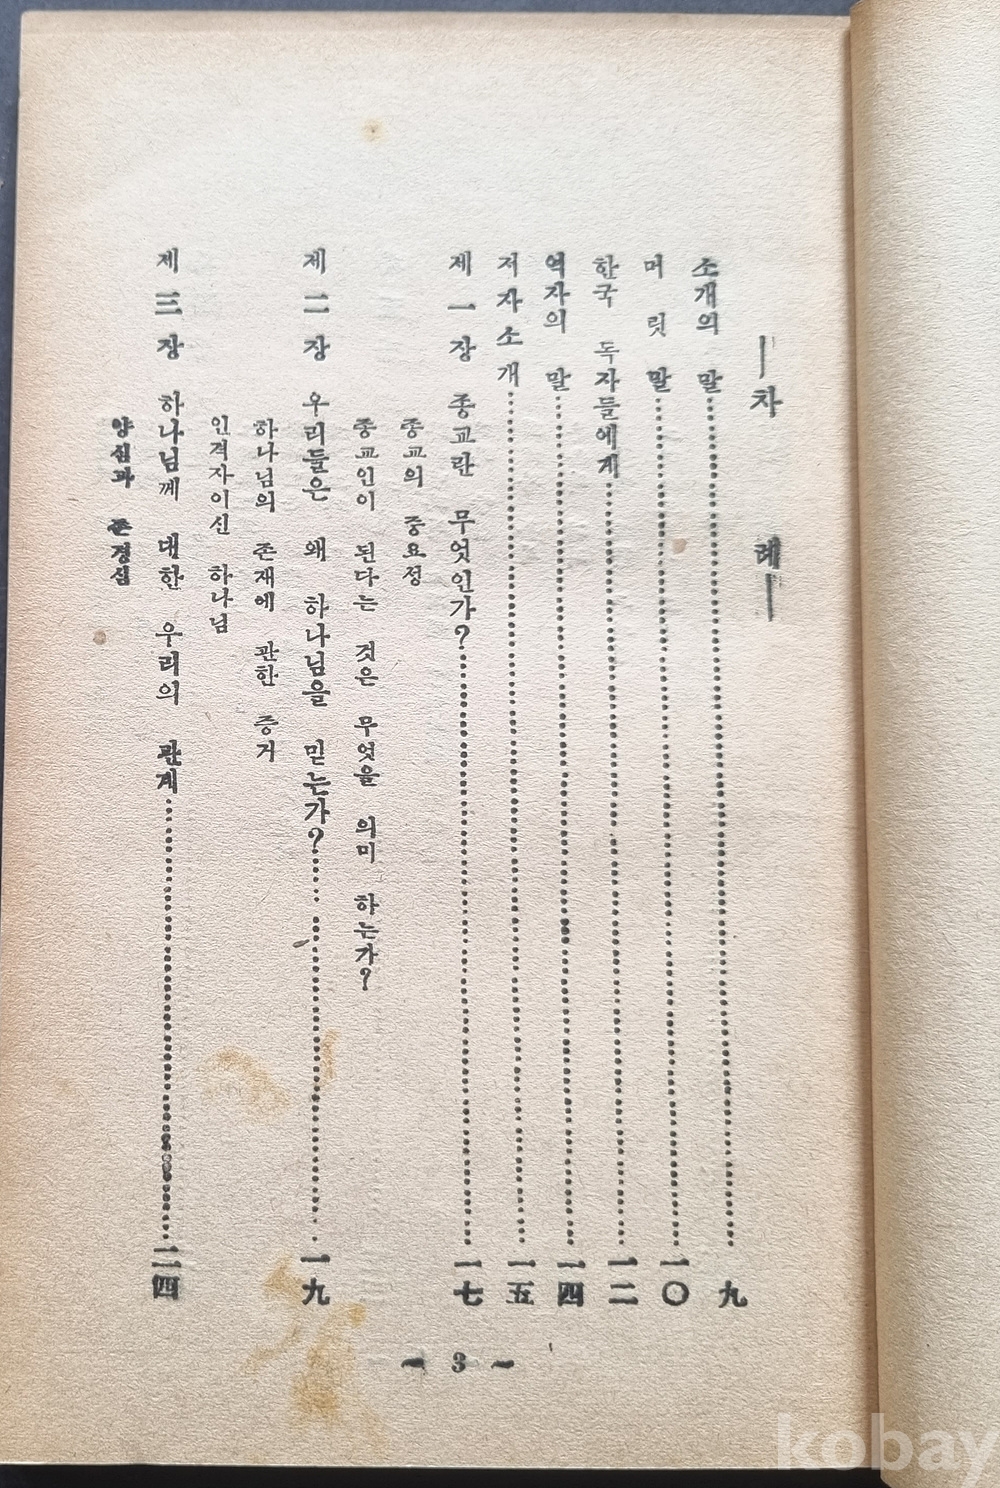 ―차 례―
소개의 말 九
머릿말 一〇
한국 독자들에게 一二
역자의 말 一四
저자소개 一五
제 一 장 종교란 무엇인가? 一七
종교의 중요성
종교인이 된다는 것은 무엇을 의미 하는가?
제 二 장 우리들은 왜 하나님을 믿는가? 一九
하나님의 존재에 관한 증거
인격자이신 하나님
제 三 장 하나님께 대한 우리의 관계 二四
양심과 존경심
― 3 ―
kobay